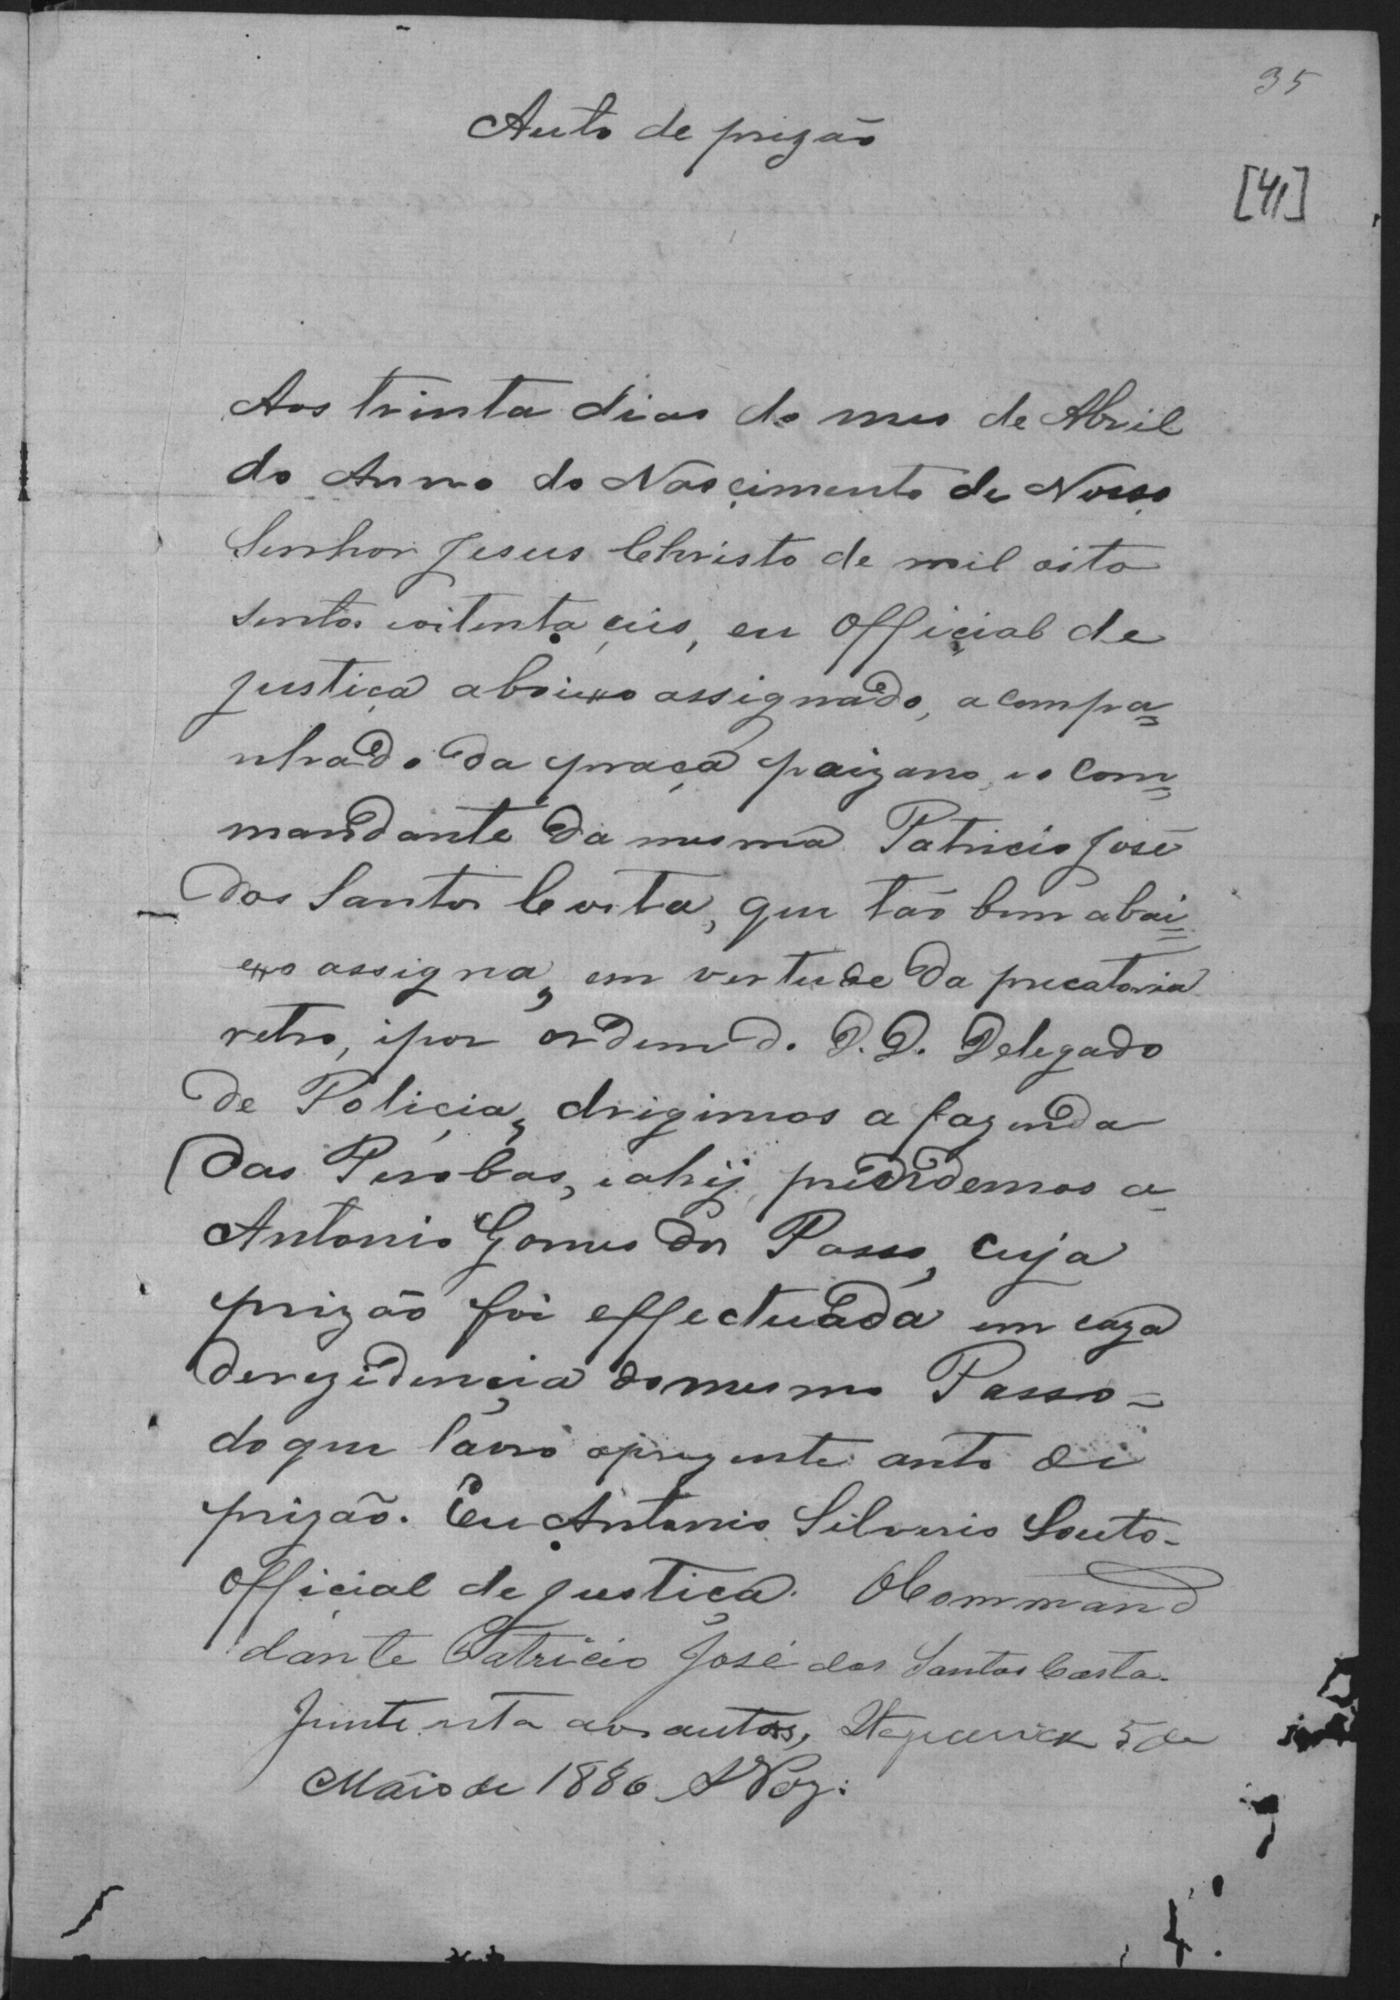 35
Auto de prizão
[41]
Aos trinta dias do mes de Abril
do Anno do Nascimento de Nosso
Senhor Jesus Christo de mil oito
sentos e oitenta çeis, eu official de
justiça abaixo assignado, acompa=
nhado da praça paizano, e o Com=
mandante da mesma Patricio José
dos Santos Costa, que tão bem abai=
xo assigna, em vertude da precatoria
retro, i por ordem do D.D. Delegado
de Poliçia, drigimos a fazenda
das Perobas, e ahij prendemos a
Antonio Gomes dos Passo, cuja
prizão foi effectuada em caza
derezidençia do mesmo Passo=
do que lavro oprezente auto de
prizão. Eu Antonio Silverio Souto-
official de justiça. OCommand
dante Patricio José dos Santos Costa.
Junte esta aos autos, 5 de
Maio de 1886